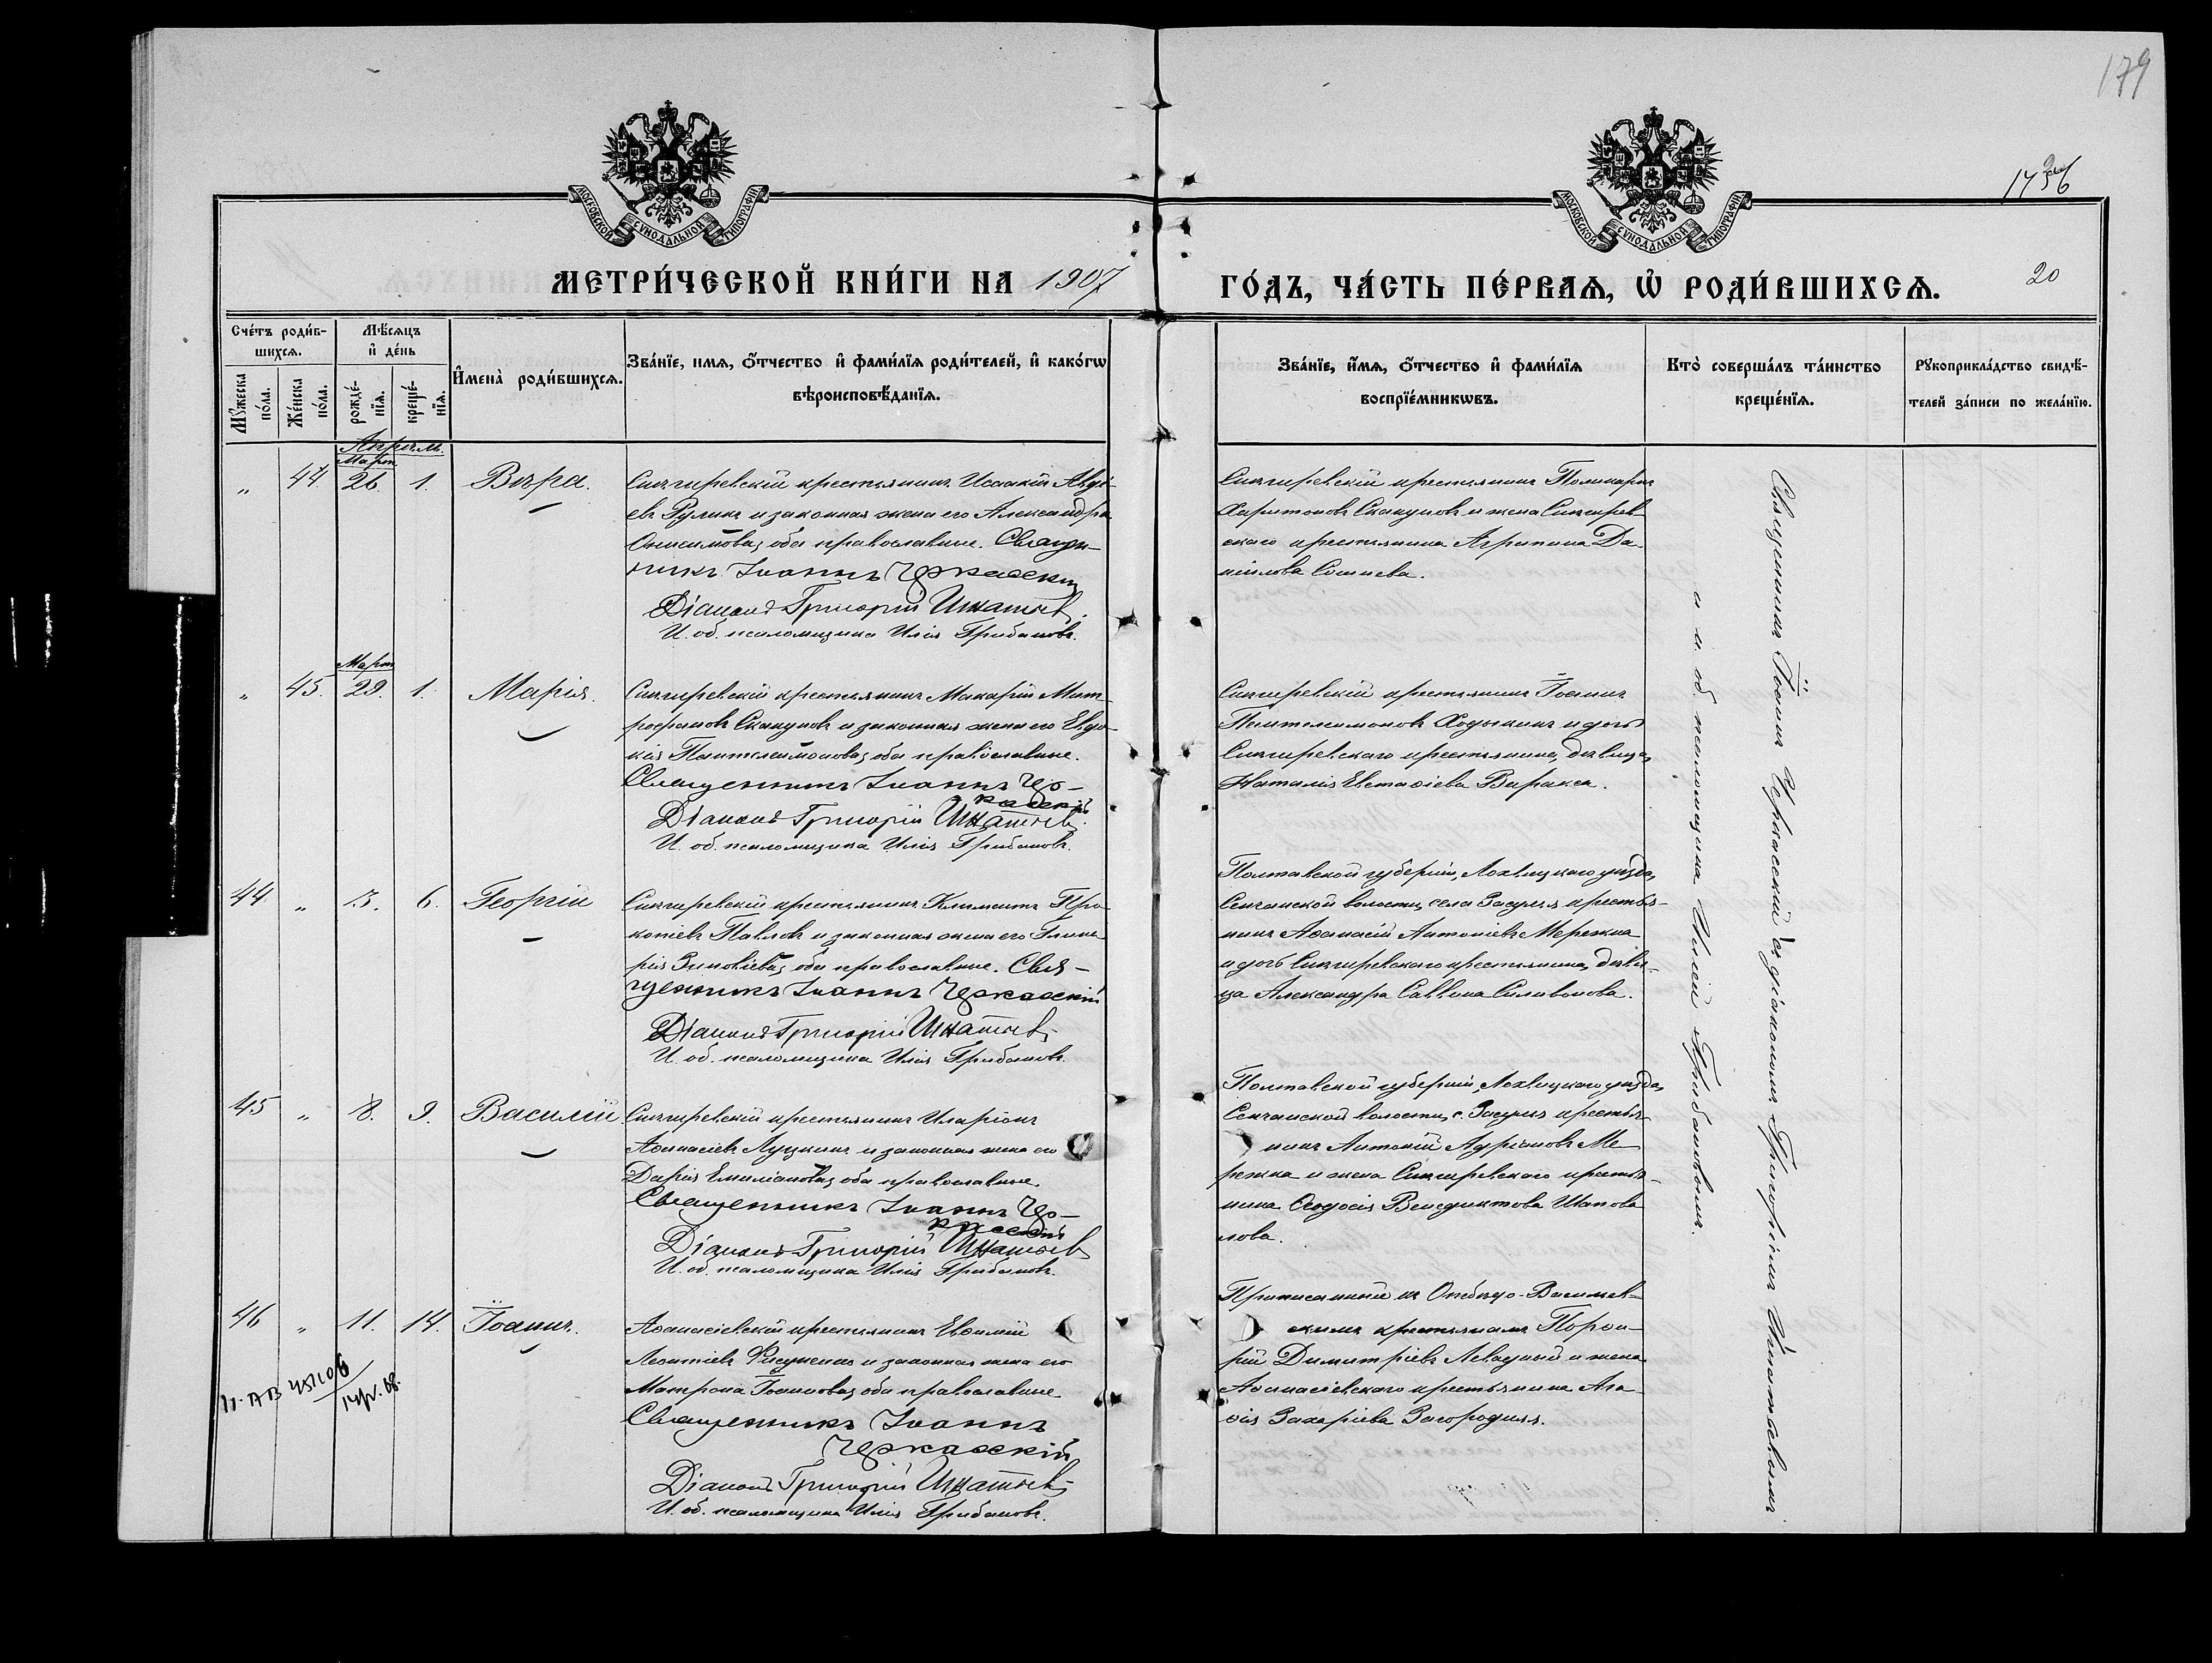 179
1736
20
МОСКОВСКОЙ СУНОДАЛЬНОЙ ТИПОГРАФІИ
МОСКОВСКОЙ СУНОДАЛЬНОЙ ТИПОГРАФІИ
МЕТРИ́ЧЕСКОЙ КНИ́ГИ НА 1907 ГО́ДЪ, ЧА́СТЬ ПЕ́РВАѦ, Ѡ҆ РОДИ́ВШИХСѦ.
Сче́тъ роди́в-
шихсѧ.
Мꙋ́жеска
по́ла.
Же́нска
по́ла.
Мѣ́сѧцъ
и҆ де́нь
рожде́-
нїѧ.
креще́-
нїѧ.
И҆мена̀ роди́вшихсѧ.
Зва́нїе, имѧ, ѻ҆́тчество и҆ фами́лїѧ роди́телей, и҆ како́гѡ
вѣроисповѣ́данїѧ.
Зва́нїе, и҆́мѧ, ѻ҆́тчество и҆ фами́лїѧ
воспрїе́мникѡвъ.
Кто̀ соверша́лъ та́инство
креще́нїѧ.
Рꙋкоприкла́дство свидѣ́-
телей за́писи по жела́нїю.
Апрѣль.
Март
" 44. 26. 1. Вѣра.
Снѣгиревскій крестьянинъ Исаакій Авді-
евъ Рулинъ и законная жена его Александра
Онисимова, оба православные. Священ-
никъ Іоаннъ Черкасскій
Діаконъ Григорій Игнатьев.
И. об. псаломщика Илія Грибановъ.
Снѣгиревскій крестьянинъ Поликарпъ
Харитоновъ Скакуновъ и жена Снѣгирев-
скаго крестьянина Агрипина Да-
ніилова Сошнева.
Март
" 45. 29. 1. Марія.
Снѣгиревскій крестьянинъ Макарій Мит-
рофановъ Скакуновъ и законная жена его Евдо-
кія Пантелеимонова, оба православные.
Священникъ Іоаннъ Чер-
касскій
Діаконъ Григорій Игнатьев.
И. об. псаломщика Илія Грибановъ.
Снѣгиревскій крестьянинъ Іоаннъ
Пантелеимоновъ Ходыкинъ и дочь
Снѣгиревскаго крестьянина, дѣвица,
Наталія ЕвстафіеваВаракса.
44 " 3. 6. Георгій
Снѣгиревскій крестьянинъ Климентъ Про-
копіевъ Павловъ и законная жена его Глике-
рія Зиновіева, оба православные. Свя-
щенникъ Іоаннъ Черкасскій
Діаконъ Григорій Игнатьев.
И. об. псаломщика Илія Грибановъ.
Полтавской губерніи, Лохвицкаго уѣзда,
Сенчанской волости, села Засулья крестья-
нинъ Аѳанасій Антоніевъ Мережка
и дочь Снѣгиревскаго крестьянина, дѣви-
ца Александра Саввина Силивонова.
45 " 8. 9. Василій
Снѣгиревскій крестьянинъ Иларіонъ
Аѳанасіевъ Луцкинъ и законная жена его
Дарія Емиліанова, оба православные.
Священникъ Іоаннъ Чер-
касскій
Діаконъ Григорій Игнатьев
И. об. псаломщика Илія Грибановъ.
Полтавской губерніи, Лохвицкаго уѣзда,
Сенчанской волости, с. Засулья крестья-
нинъ Антоній Адріановъ Ме-
режка и жена Снѣгиревскаго крестья-
нина Ѳеодосія Венедиктова Шапова-
лова.
46 " 11. 14. Іоаннъ.
Аѳанасіевскій крестьянинъ Евѳимій
Леонтіевъ Фисуненко и законная жена его
Матрона Іоаннова, оба православные
Священникъ Іоаннъ
Черкасскій
Діаконъ Григорій Игнатьев
И. об. псаломщика Илія Грибановъ.
Приписанный къ Отбѣдо-Васильев-
скимъ крестьянамъ Порфи-
рій Димитріевъ Левадный и жена
Аѳанасіевскаго крестьянина Ага-
ѳія Захаріева Загородняя.
Священникъ Іоаннъ Черкасскій съ діакономъ Григоріемъ Игнатьевымъ
и и. об. псаломщика Иліей Грибановымъ.